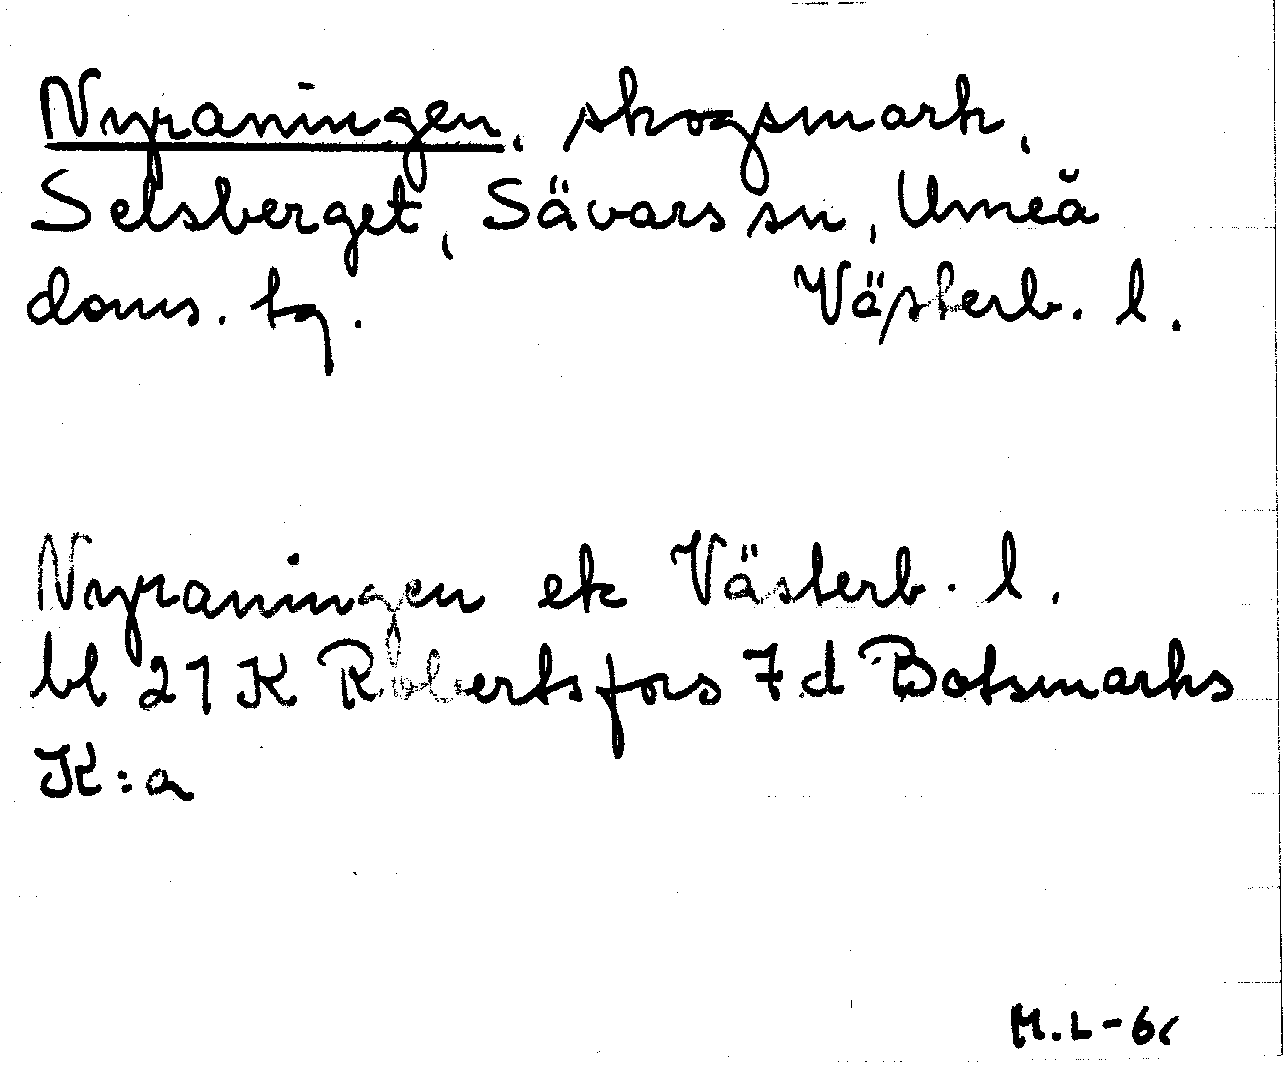 Nyraningen, skogsmark,
Selsberget, Sävars sn, Umeå
doms. tg. Västerb. l.
Nyraningen ek Västerb. l.
bl 21 K Robertsfors 7d Botsmarks
K:a
M.L-